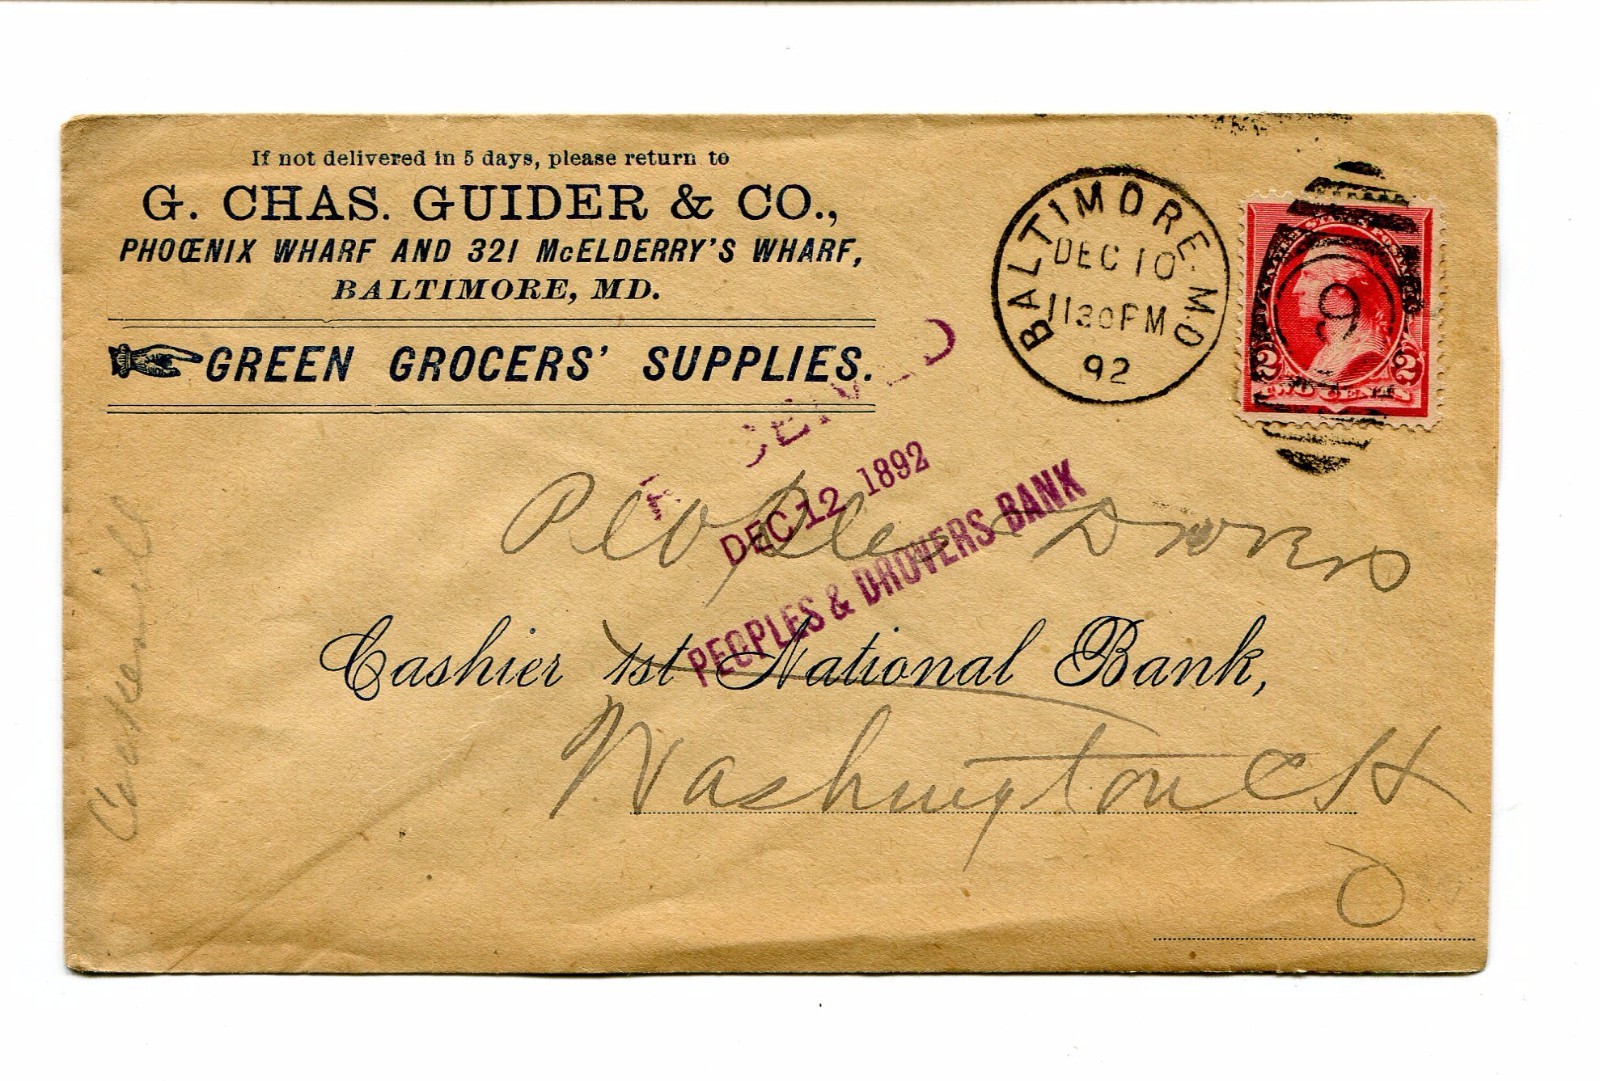 If not delivered in 5 days, please return to
G. CHAS. GUIDER & CO.,
PHOŒNIX WHARF AND 321 McELDERRY'S WHARF,
BALTIMORE, MD.
GREEN GROCERS' SUPPLIES.
BALTIMORE. MD
DEC 10
1130PM
92
9
2 2
TWO CENTS
DEC 12 1892
PEOPLES & DROVERS BANK
Peoples & Drovers
Cashier 1st National Bank,
Washington C H
O